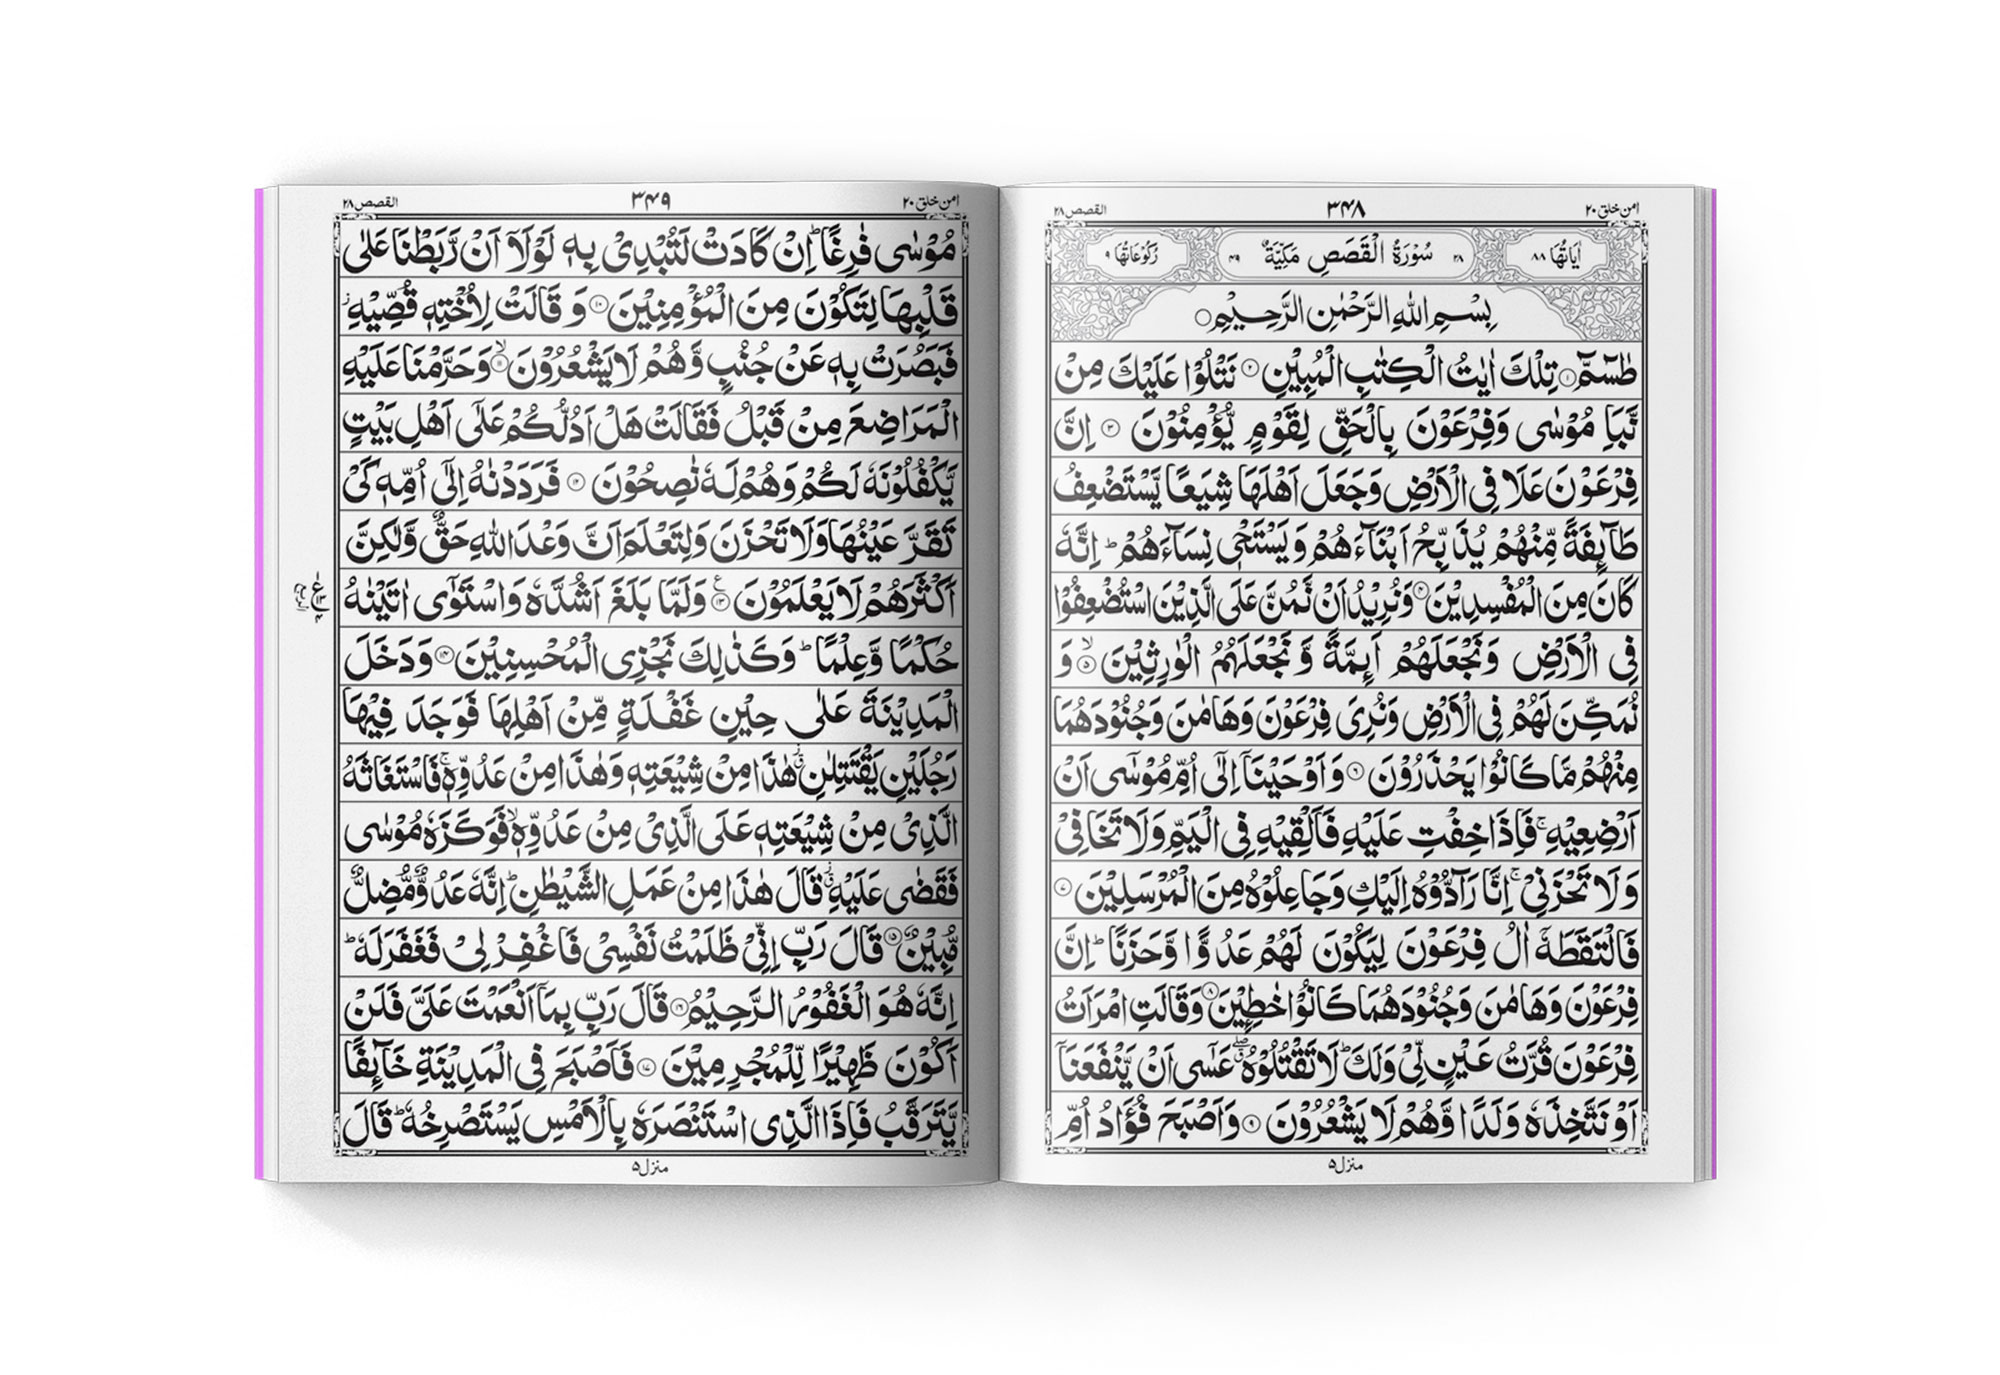 امن خلق ۲۰
۳۴۸
القصص ۲۸
اٰیَاتُهَا ۸۸
۲۸ سُوْرَةُ الْقَصَصِ مَكِّیَّةٌ ۴۹
رُكُوْعَاتُهَا ۹
بِسْمِ اللّٰهِ الرَّحْمٰنِ الرَّحِیْمِ○
طٰسٓمّٓ ۱ تِلْكَ اٰیٰتُ الْكِتٰبِ الْمُبِیْنِ ۲ نَتْلُوْا عَلَیْكَ مِنْ
نَّبَاِ مُوْسٰی وَفِرْعَوْنَ بِالْحَقِّ لِقَوْمٍ یُّؤْمِنُوْنَ ۳ اِنَّ
فِرْعَوْنَ عَلَا فِی الْاَرْضِ وَجَعَلَ اَهْلَهَا شِیَعًا یَّسْتَضْعِفُ
طَآىِٕفَةً مِّنْهُمْ یُذَبِّحُ اَبْنَآءَهُمْ وَیَسْتَحْیٖ نِسَآءَهُمْ ؕ اِنَّهٗ
كَانَ مِنَ الْمُفْسِدِیْنَ ۴ وَنُرِیْدُ اَنْ نَّمُنَّ عَلَی الَّذِیْنَ اسْتُضْعِفُوْا
فِی الْاَرْضِ وَنَجْعَلَهُمْ اَىِٕمَّةً وَّنَجْعَلَهُمُ الْوٰرِثِیْنَ ۙ ۵ وَ
نُمَكِّنَ لَهُمْ فِی الْاَرْضِ وَنُرِیَ فِرْعَوْنَ وَهَامٰنَ وَجُنُوْدَهُمَا
مِنْهُمْ مَّا كَانُوْا یَحْذَرُوْنَ ۶ وَاَوْحَیْنَاۤ اِلٰۤی اُمِّ مُوْسٰۤی اَنْ
اَرْضِعِیْهِ ۚ فَاِذَا خِفْتِ عَلَیْهِ فَاَلْقِیْهِ فِی الْیَمِّ وَلَا تَخَافِیْ
وَلَا تَحْزَنِیْ ۚ اِنَّا رَآدُّوْهُ اِلَیْكِ وَجَاعِلُوْهُ مِنَ الْمُرْسَلِیْنَ ۷
فَالْتَقَطَهٗۤ اٰلُ فِرْعَوْنَ لِیَكُوْنَ لَهُمْ عَدُوًّا وَّحَزَنًا ؕ اِنَّ
فِرْعَوْنَ وَهَامٰنَ وَجُنُوْدَهُمَا كَانُوْا خٰطِـِٕیْنَ ۸ وَقَالَتِ امْرَاَتُ
فِرْعَوْنَ قُرَّتُ عَیْنٍ لِّیْ وَلَكَ ؕ لَا تَقْتُلُوْهُ ۖۗ عَسٰۤی اَنْ یَّنْفَعَنَاۤ
اَوْ نَتَّخِذَهٗ وَلَدًا وَّهُمْ لَا یَشْعُرُوْنَ ۹ وَاَصْبَحَ فُؤَادُ اُمِّ
منزل۵
امن خلق ۲۰
۳۴۹
القصص ۲۸
مُوْسٰی فٰرِغًا ؕ اِنْ كَادَتْ لَتُبْدِیْ بِهٖ لَوْلَاۤ اَنْ رَّبَطْنَا عَلٰی
قَلْبِهَا لِتَكُوْنَ مِنَ الْمُؤْمِنِیْنَ ۱۰ وَقَالَتْ لِاُخْتِهٖ قُصِّیْهِ ؗ
فَبَصُرَتْ بِهٖ عَنْ جُنُبٍ وَّهُمْ لَا یَشْعُرُوْنَ ۙ ۱۱ وَحَرَّمْنَا عَلَیْهِ
الْمَرَاضِعَ مِنْ قَبْلُ فَقَالَتْ هَلْ اَدُلُّكُمْ عَلٰۤی اَهْلِ بَیْتٍ
یَّكْفُلُوْنَهٗ لَكُمْ وَهُمْ لَهٗ نٰصِحُوْنَ ۱۲ فَرَدَدْنٰهُ اِلٰۤی اُمِّهٖ كَیْ
تَقَرَّ عَیْنُهَا وَلَا تَحْزَنَ وَلِتَعْلَمَ اَنَّ وَعْدَ اللّٰهِ حَقٌّ وَّلٰكِنَّ
اَكْثَرَهُمْ لَا یَعْلَمُوْنَ ۱۳ ع وَلَمَّا بَلَغَ اَشُدَّهٗ وَاسْتَوٰۤی اٰتَیْنٰهُ
حُكْمًا وَّعِلْمًا ؕ وَكَذٰلِكَ نَجْزِی الْمُحْسِنِیْنَ ۱۴ وَدَخَلَ
الْمَدِیْنَةَ عَلٰی حِیْنِ غَفْلَةٍ مِّنْ اَهْلِهَا فَوَجَدَ فِیْهَا
رَجُلَیْنِ یَقْتَتِلٰنِ ؗ هٰذَا مِنْ شِیْعَتِهٖ وَهٰذَا مِنْ عَدُوِّهٖ ۚ فَاسْتَغَاثَهُ
الَّذِیْ مِنْ شِیْعَتِهٖ عَلَی الَّذِیْ مِنْ عَدُوِّهٖ ۙ فَوَكَزَهٗ مُوْسٰی
فَقَضٰی عَلَیْهِ ؗ قَالَ هٰذَا مِنْ عَمَلِ الشَّیْطٰنِ ؕ اِنَّهٗ عَدُوٌّ مُّضِلٌّ
مُّبِیْنٌ ۱۵ قَالَ رَبِّ اِنِّیْ ظَلَمْتُ نَفْسِیْ فَاغْفِرْ لِیْ فَغَفَرَ لَهٗ ؕ
اِنَّهٗ هُوَ الْغَفُوْرُ الرَّحِیْمُ ۱۶ قَالَ رَبِّ بِمَاۤ اَنْعَمْتَ عَلَیَّ فَلَنْ
اَكُوْنَ ظَهِیْرًا لِّلْمُجْرِمِیْنَ ۱۷ فَاَصْبَحَ فِی الْمَدِیْنَةِ خَآىِٕفًا
یَّتَرَقَّبُ فَاِذَا الَّذِی اسْتَنْصَرَهٗ بِالْاَمْسِ یَسْتَصْرِخُهٗ ؕ قَالَ
منزل۵